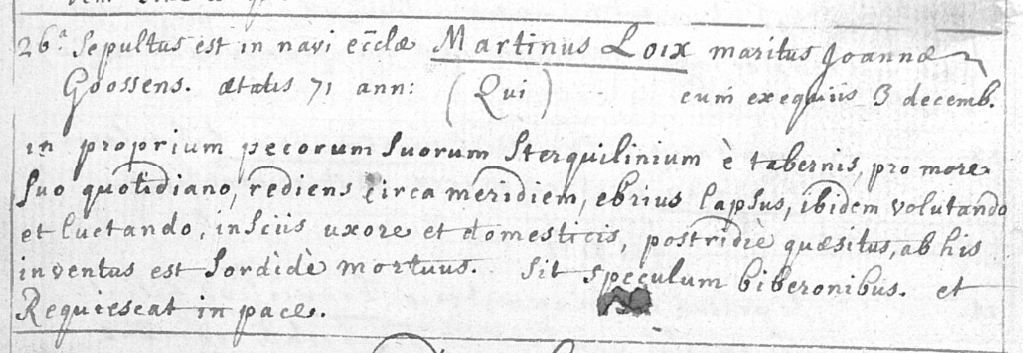 26.ª Sepultus est in navi ec̄clæ Martinus Loix maritus Joannæ
Goossens. ætatis 71 ann: (Qui) cum exequiis 3 decemb.
in proprium pecorum suorum sterquilinium è tabernis, pro more
suo quotidiano, rediens circa meridiem, ebrius lapsus, ibidem volutando
et luctando, insciis uxore et domesticis, postridiè quæsitus, ab his
inventus est sordidè mortuus. Sit speculum biberonibus. et
Requiescat in pace.